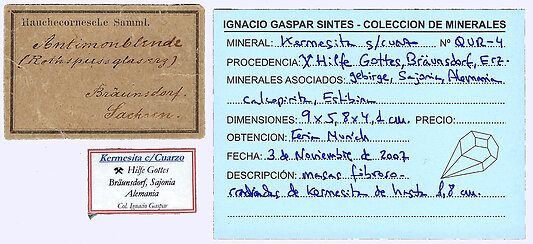 Hauchecornesche Samml.
Antimonblende
(Rothspiessglaserz)
Bräunsdorf.
Sachsen.
Kermesita c/Cuarzo
⚒ Hilfe Gottes
Bräunsdorf, Sajonia
Alemania
Col. Ignacio Gaspar
IGNACIO GASPAR SINTES - COLECCION DE MINERALES
MINERAL: Kermesita s/cuarzo Nº QUR-4
PROCEDENCIA: Hilfe Gottes, Bräunsdorf, Erz-
MINERALES ASOCIADOS: gebirge, Sajonia, Alemania
Calcopirita, Estibina
DIMENSIONES: 9 x 5,8 x 4,1 cm. PRECIO:
OBTENCION: Feria Munich
FECHA: 3 de Noviembre de 2007
DESCRIPCIÓN: masas fibroso-
radiadas de kermesita de hasta 1,8 cm.